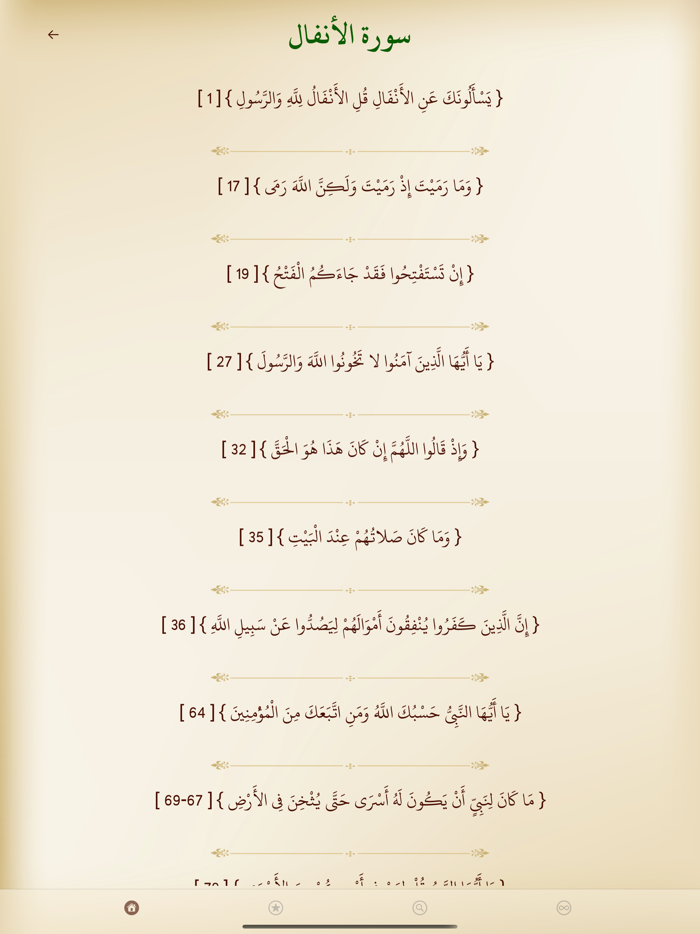 سورة الأنفال
{ يَسْأَلُونَكَ عَنِ الأَنْفَالِ قُلِ الأَنْفَالُ لِلَّهِ وَالرَّسُولِ } [ 1 ]
{ وَمَا رَمَيْتَ إِذْ رَمَيْتَ وَلَكِنَّ اللَّهَ رَمَى } [ 17 ]
{ إِنْ تَسْتَفْتِحُوا فَقَدْ جَاءَكُمُ الْفَتْحُ } [ 19 ]
{ يَا أَيُّهَا الَّذِينَ آمَنُوا لا تَخُونُوا اللَّهَ وَالرَّسُولَ } [ 27 ]
{ وَإِذْ قَالُوا اللَّهُمَّ إِنْ كَانَ هَذَا هُوَ الْحَقَّ } [ 32 ]
{ وَمَا كَانَ صَلاتُهُمْ عِنْدَ الْبَيْتِ } [ 35 ]
{ إِنَّ الَّذِينَ كَفَرُوا يُنْفِقُونَ أَمْوَالَهُمْ لِيَصُدُّوا عَنْ سَبِيلِ اللَّهِ } [ 36 ]
{ يَا أَيُّهَا النَّبِيُّ حَسْبُكَ اللَّهُ وَمَنِ اتَّبَعَكَ مِنَ الْمُؤْمِنِينَ } [ 64 ]
{ مَا كَانَ لِنَبِيٍّ أَنْ يَكُونَ لَهُ أَسْرَى حَتَّى يُثْخِنَ فِي الأَرْضِ } [ 67-69 ]